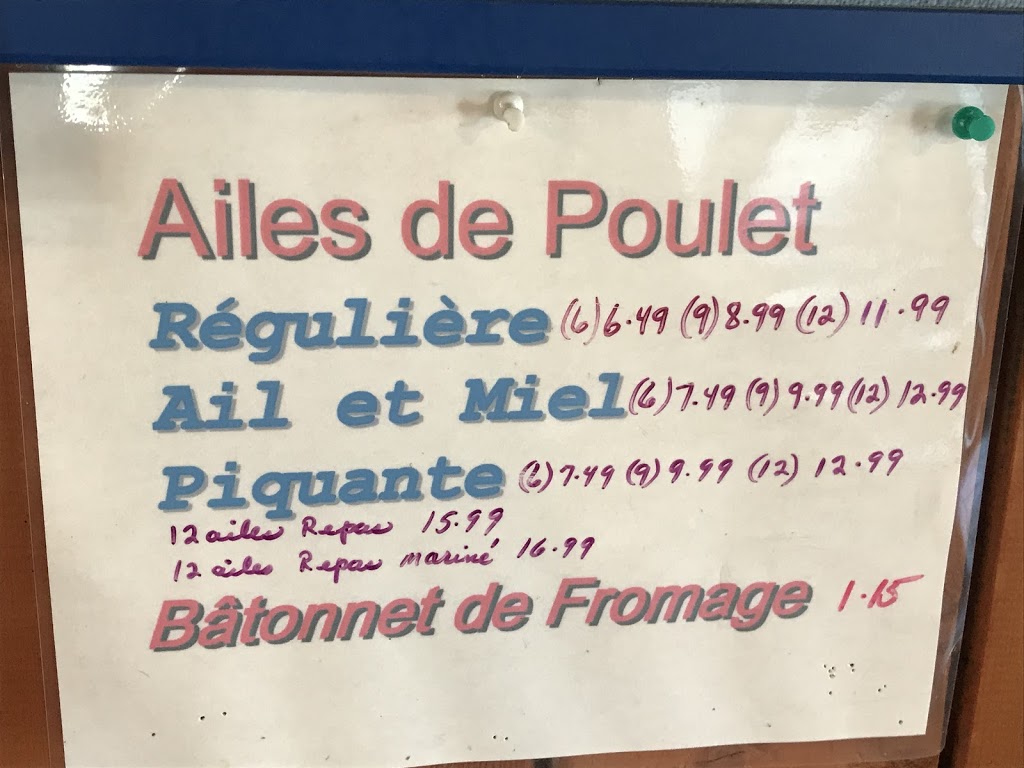 Ailes de Poulet
Régulière (6) 6.49 (9) 8.99 (12) 11.99
Ail et Miel (6) 7.49 (9) 9.99 (12) 12.99
Piquante (6) 7.49 (9) 9.99 (12) 12.99
12 ailes Repas 15.99
12 ailes Repas mariné 16.99
Bâtonnet de Fromage 1.15